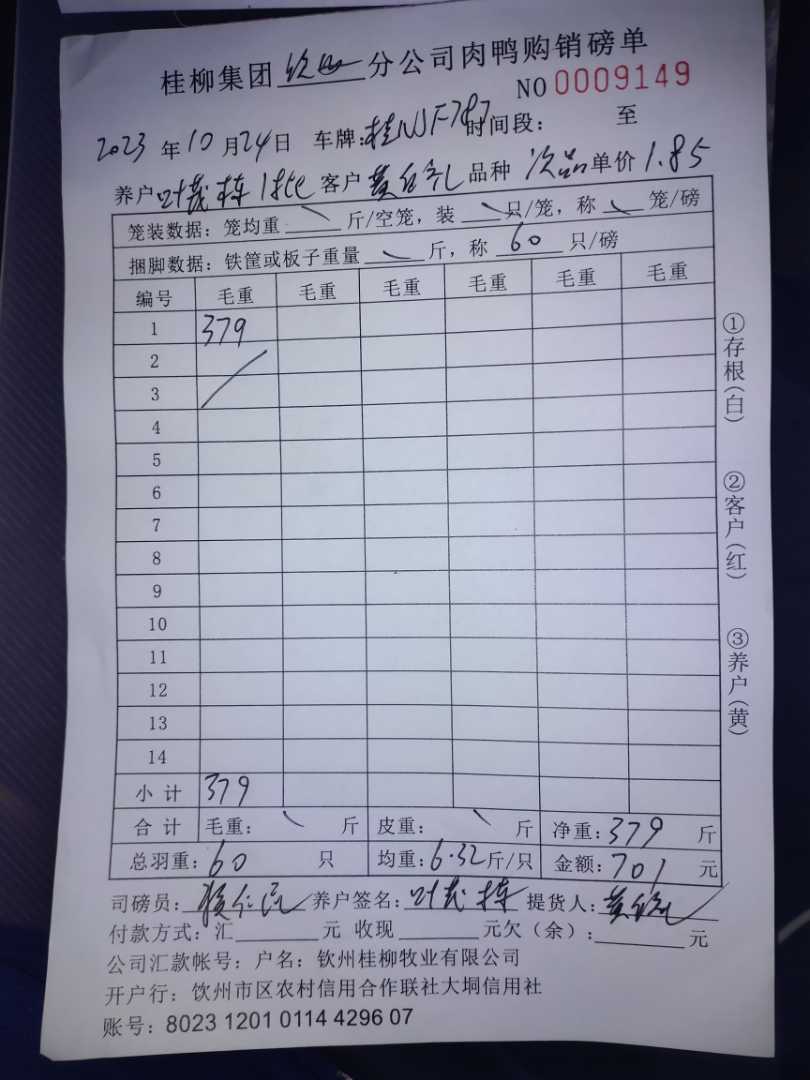 桂柳集团 钦州 分公司肉鸭购销磅单
NO 0009149
2023 年 10 月 24 日 车牌: 时间段: 至
养户 叶茂栋 客户 品种 次品 单价 1.85
笼装数据: 笼均重 \ 斤/空笼, 装 \ 只/笼, 称 \ 笼/磅
捆脚数据: 铁筐或板子重量 \ 斤, 称 60 只/磅
编号 毛重 毛重 毛重 毛重 毛重 毛重
1 379
2
3
4
5
6
7
8
9
10
11
12
13
14
小计 379
合计 毛重: \ 斤 皮重: \ 斤 净重: 379 斤
总羽重: 60 只 均重: 6.32 斤/只 金额: 701 元
司磅员: 养户签名: 叶茂栋 提货人:
付款方式: 汇 元 收现 元欠(余): 元
公司汇款帐号: 户名: 钦州桂柳牧业有限公司
开户行: 饮州市区农村信用合作联社大垌信用社
账号: 8023 1201 0114 4296 07
①存根(白)
②客户(红)
③养户(黄)